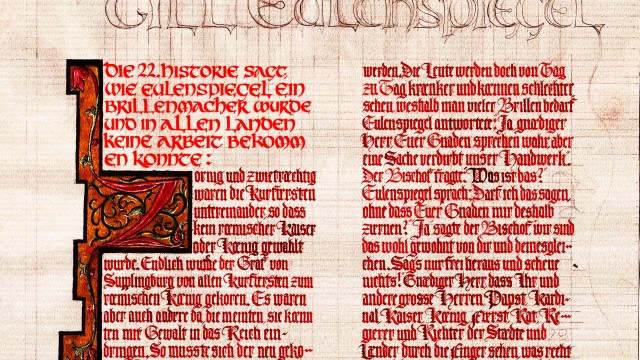 TILL EULENSPIEGEL
DIE 22. HISTORIE SAGT,
WIE EULENSPIEGEL EIN
BRILLENMACHER WURDE
UND IN ALLEN LANDEN
KEINE ARBEIT BEKOMM
EN KONNTE:
Zornig und zwietrachtig
waren die Kurfürsten
untereinander, so dass
kein rœmischer Kaiser
oder Kœnig gewählt
wurde. Endlich wurde der Graf von
Suplingburg von allen Kurfürsten zum
rœmischen Kœnig gekoren. Es waren
aber auch andere da, die meinten, sie kœnn
ten mit Gewalt in das Reich ein-
dringen. So musste sich der neu geko-
werden. Die Leute werden doch von Tag
zu Tag kränker und kœnnen schlechter
sehen, weshalb man vieler Brillen bedarf.
Eulenspiegel antwortete: Ja, gnädiger
Herr, Euer Gnaden sprechen wohr, aber
eine Sache verdirbt unser Handwerk.
Der Bischof fragte: Was ist das?
Eulenspiegel sprach: Darf ich das sagen,
ohne dass Euer Gnaden mir deshalb
zürnen? Ja, sagte der Bischof, wir sind
das wohl gewohnt von dir und deinesglei-
chen. Sag's nur frei heraus und scheue
nichts! Gnädiger Herr, dass Ihr und
andere grosse Herren, Papst, Kardi-
nal, Kaiser, Kœnig, Fürst, Rat, Re-
gierer und Richter der Städte und
Länder durch die Finger sehen, was recht